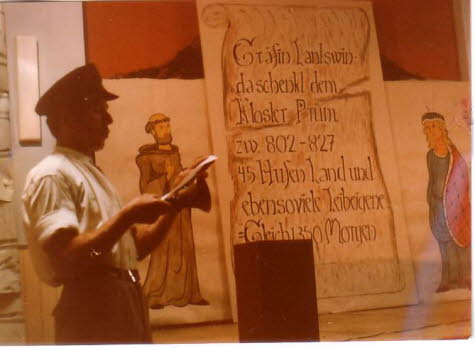 Gräfin Lantswin-
da schenkt dem
Kloster Prüm
zw. 802-827
45 Hufen Land und
ebensoviele Leibeigene
=Gleich 1350 Morgen